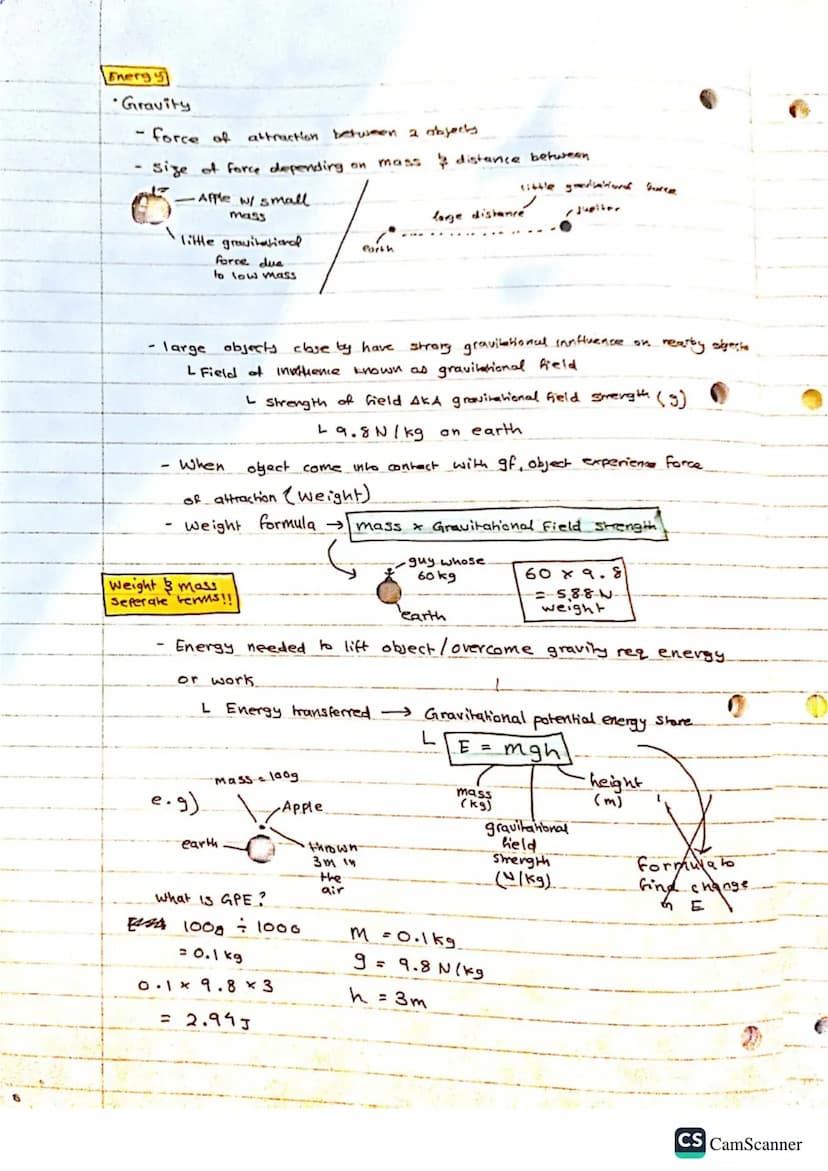 Energy
• Gravity
- force of attraction between 2 objects
- Size of force depending on mass & distance between
Apple w/ small
mass
little gravitational
force due
to low mass
little gravitational force
large distance
Jupiter
earth
- large objects close by have strong gravitational innfluence on nearby objects
└ Field of influence known as gravitational field
└ Strength of field AKA gravitational field strength (g)
└ 9.8 N/kg on earth
- When object come into contact with gf, object experience force
of attraction (weight)
- Weight formula → mass x Gravitational Field Strength
guy whose
60kg
earth
60 x 9.8
= 588 N
weight
Weight & mass
Seperate terms!!
- Energy needed to lift object/overcome gravity req energy
or work
└ Energy transferred → Gravitational potential energy store
└ E = mgh
mass
(kg)
gravitational
field
strength
(N/kg)
height
(m)
formula to
find change
in E
e.g)
mass = 100g
Apple
earth
thrown
3m in
the
air
What is GPE?
100g ÷ 1000
= 0.1 kg
0.1 x 9.8 x 3
= 2.94J
m = 0.1kg
g = 9.8 N/kg
h = 3m
CS CamScanner